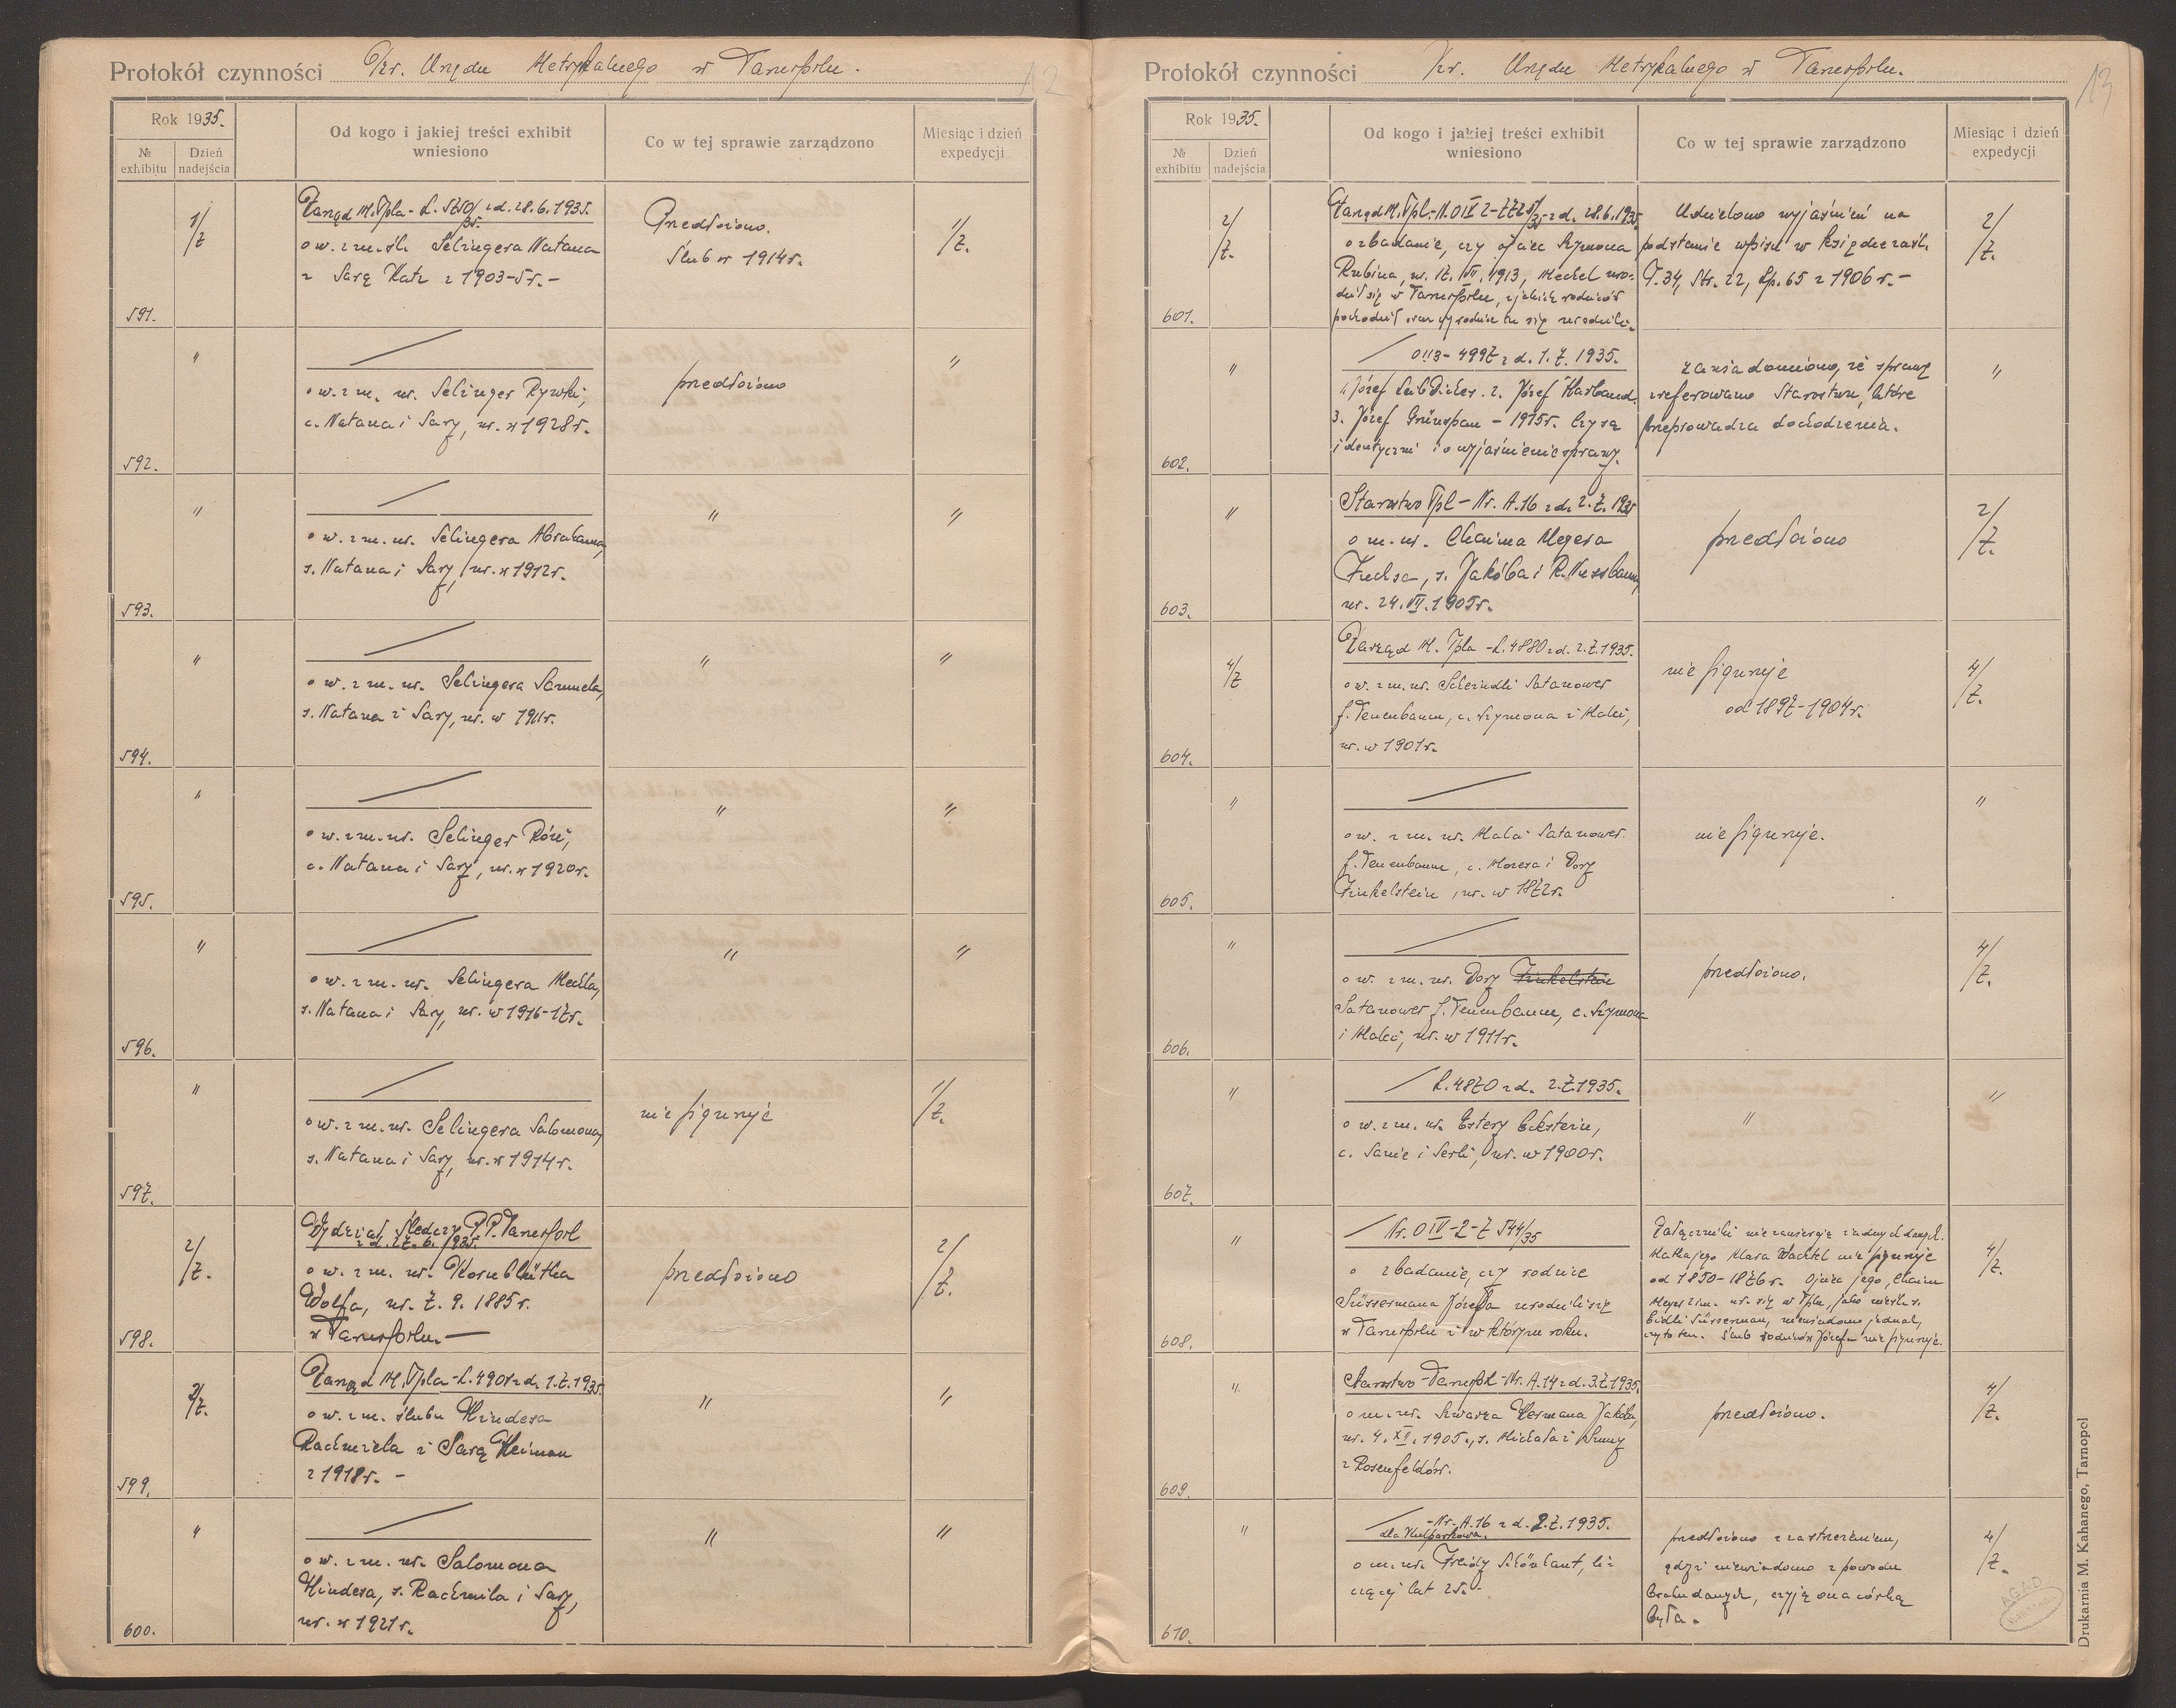 Protokół czynności Izr. Urzędu Metrykalnego w Tarnopolu.
12
Rok 1935.
№ exhibitu
Dzień nadejścia
Od kogo i jakiej treści exhibit wniesiono
Co w tej sprawie zarządzono
Miesiąc i dzień expedycji
591.
1/7
Zarząd M. Tpla - L. 5750/35. z d. 28.6.1935.
o w. z m. śl. Selingera Natana
z Sarą Katz z 1903-5r. -
Przedłożono.
Ślub w 1914r.
1/7.
592.
"
o w. z m. ur. Selinger Rywki,
c. Natana i Sary, ur. w 1928r.
przedłożono
"
593.
"
o w. z m. ur. Selingera Abrahama,
s. Natana i Sary, ur. w 1912r.
"
"
594.
"
o w. z m. ur. Selingera Samuela,
s. Natana i Sary, ur. w 1911r.
"
"
595.
"
o w. z m. ur. Selinger Rózi,
c. Natana i Sary, ur. w 1920r.
"
"
596.
"
o w. z m. ur. Selingera Mechla,
s. Natana i Sary, ur. w 1916-17r.
"
"
597.
"
o w. z m. ur. Selingera Salomona,
s. Natana i Sary, ur. w 1914r.
nie figuruje
1/7.
598.
2/7.
Wydział Śledczy P.P. Tarnopol
z d. 27. 6. 1935.
o w. z m. ur. Kornblütha
Wolfa, ur. 7. 9. 1885r.
w Tarnopolu. -
przedłożono
2/7.
599.
2/7.
Zarząd M. Tpla - L. 4901 z d. 1.7.1935.
o w. z m. ślubu Hindesa
Rachmiela z Sarą Heiman
z 1918r. -
"
"
600.
"
o w. z m. ur. Salomona
Hindesa, s. Rachmila i Sary,
ur. w 1921r.
"
"
Protokół czynności Izr. Urzędu Metrykalnego w Tarnopolu.
13
Rok 1935.
№ exhibitu
Dzień nadejścia
Od kogo i jakiej treści exhibit wniesiono
Co w tej sprawie zarządzono
Miesiąc i dzień expedycji
601.
2/7.
Zarząd M. Tpl. - N. OIV 2-7725/35 z d. 28.6.1935
o zbadanie, czy ojciec Szymona
Rubina, ur. 17. VII. 1913, Mechel uro-
dził się w Tarnopolu, z jakich rodziców
pochodził oraz czy rodzice tu się urodzili.
Udzielono wyjaśnień na
podstawie wpisu w księdze zaśl.
T. 34, Str. 22, Lp. 65 z 1906r. -
2/7.
602.
"
0113 - 4997 z d. 1. 7. 1935.
1. Józef Leib Dicker. 2. Józef Harband.
3. Józef Grünspan - 1915r. Czy są
identyczni i o wyjaśnienie sprawy.
zawiadomiono, że sprawę
zreferowano Starostwu, które
przeprowadza dochodzenia.
"
603.
"
Starostwo Tpl - Nr. A.16 z d. 2.7.1935
o m. ur. Chaima Mayera
Fuchsa, s. Jakóba i R. Nussbaum,
ur. 24. VII. 1905r.
przedłożono
2/7.
604.
4/7
Zarząd M. Tpla - L. 4880 z d. 2.7.1935.
o w. z m. ur. Scheindli Satanower
f. Tenenbaum, c. Szymona i Malci,
ur. w 1901r.
nie figuruje
od 1897-1904r.
4/7.
605.
"
o w. z m. ur. Malci Satanower
f. Tenenbaum, c. Mozesa i Dory
Finkelstein, ur. w 1872r.
nie figuruje.
"
606.
"
o w. z m. ur. Dory Finkelstein
Satanower f. Tenenbaum, c. Szymona
i Malci, ur. w 1911r.
przedłożono.
4/7.
607.
"
L. 4870 z d. 2.7.1935.
o w. z m. ur. Estery Eckstein,
c. Sanie i Serli, ur. w 1900r.
"
"
608.
"
Nr. OIV-2-7 544/35
o zbadanie, czy rodzice
Süssermana Józefa urodzili się
w Tarnopolu i w którym roku.
Załączniki nie zawierają żadnych danych.
Matka jego Klara Wachtel nie figuruje
od 1850-1876r. Ojciec jego, Chaim
Mayer 2im. ur. się w Tplu, jako nieśl. s.
Eidli Süsserman, niewiadomo jednak,
czy to ten. Ślub rodziców Józefa nie figuruje.
4/7.
609.
"
Starostwo - Tarnopol - Nr. A.14 z d. 3.7.1935.
o m. ur. Szwarza Hermana Jakóba,
ur. 4. XI. 1905., s. Michała i
z Rosenfeldów.
przedłożono.
4/7.
610.
"
- Nr. A.16 z d. 2.7.1935.
dla Kulparkowa.
o m. ur. Freidy Schönhaut, li-
czącej lat 25. -
przedłożono z zastrzeżeniem,
gdyż niewiadomo z powodu
braku danych, czyją ona córką
była.
4/7.
Drukarnia M. Kahanego, Tarnopol
AGAD